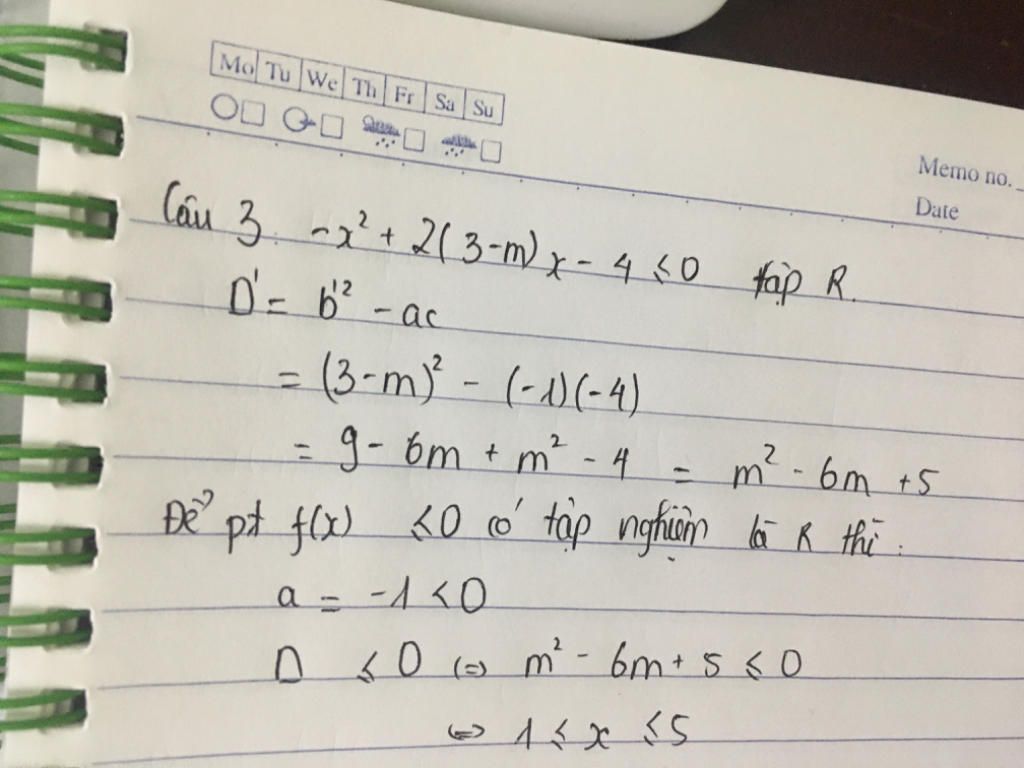 Mo Tu We Th Fr Sa Su
Memo no.
Date
Câu 3. -x² + 2(3-m)x - 4 ≤ 0 tập R.
D' = b'² - ac
= (3-m)² - (-1)(-4)
= 9 - 6m + m² - 4 = m² - 6m + 5
Để pt f(x) ≤0 có tập nghiệm là R thì:
a = -1 < 0
D ≤ 0 (=) m² - 6m + 5 ≤ 0
(=) 1 ≤ x ≤ 5